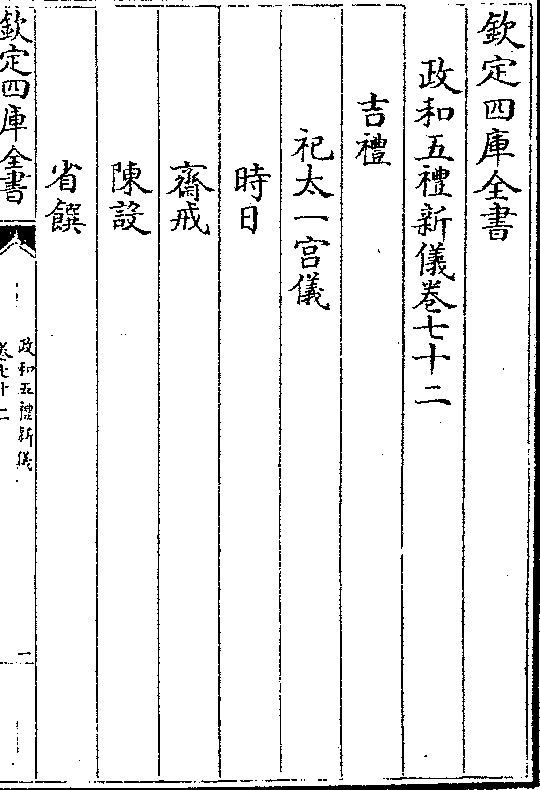 欽定四庫全書
政和五禮新儀卷七十二
吉禮
祀太一宫儀
時日
齋戒
陳設
省饌
欽定四庫全書
政和五禮新儀
卷七十二
一